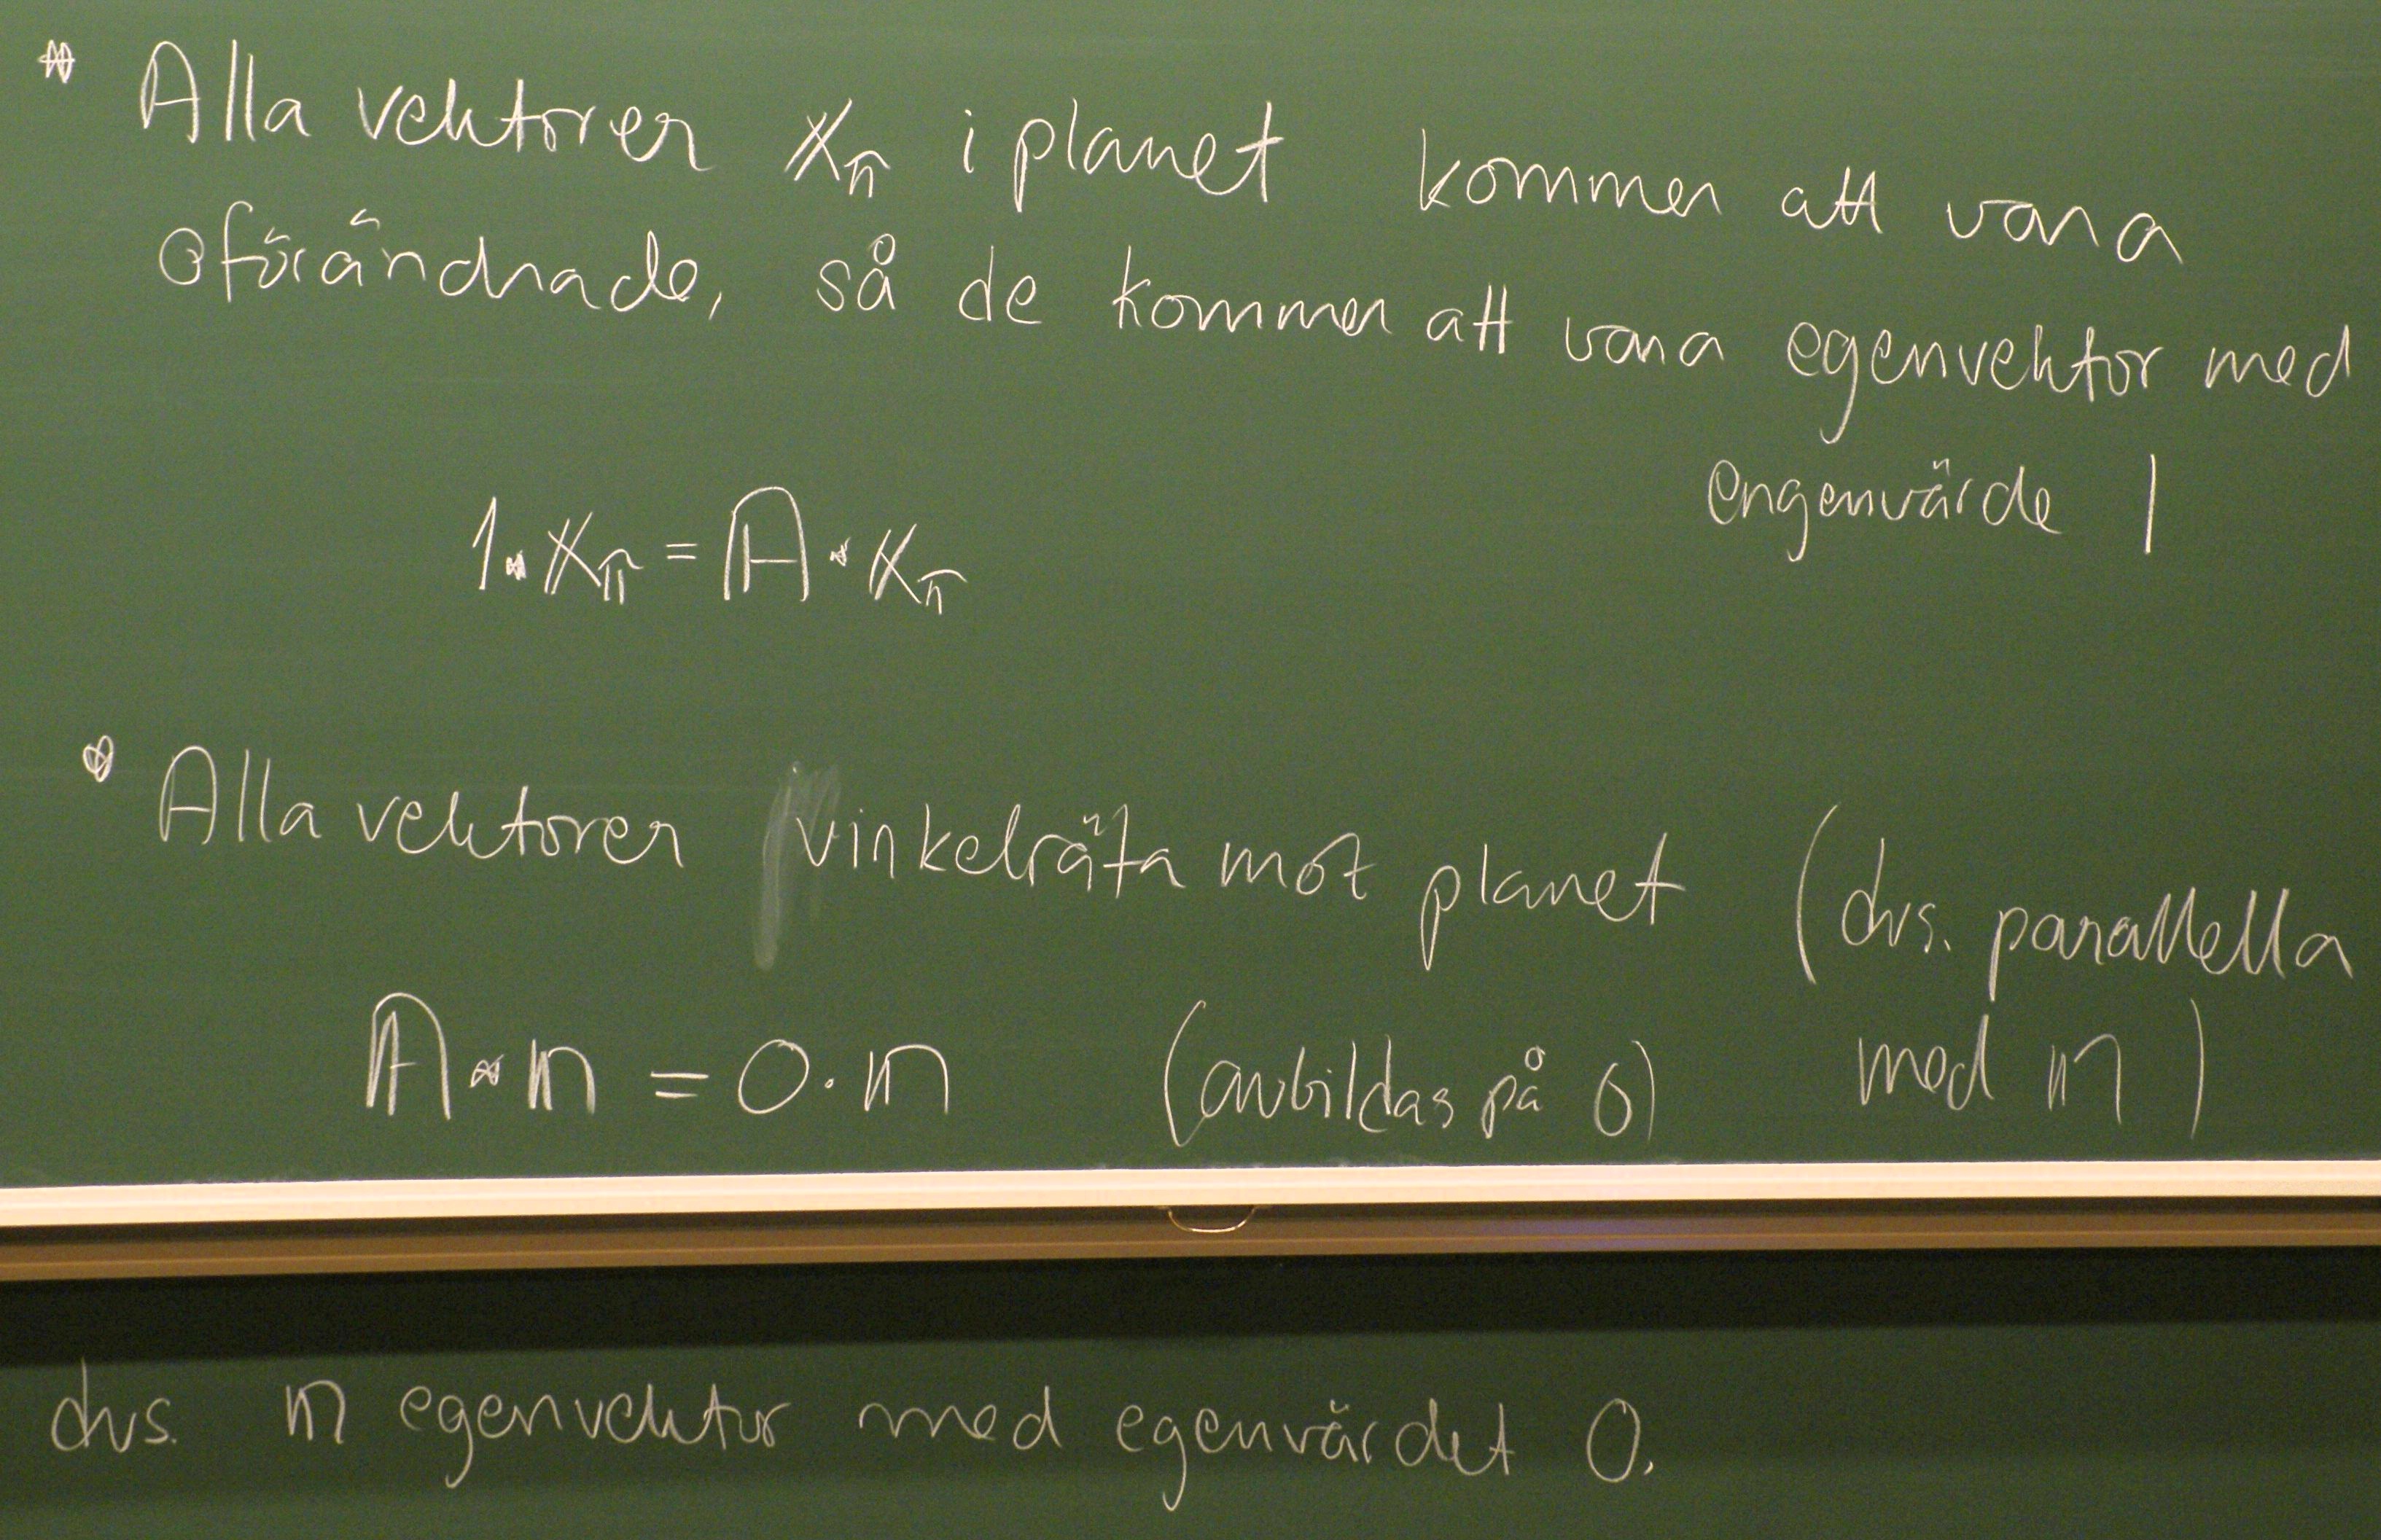 * Alla vektorer 𝕩π i planet kommer att vara
oförändrade, så de kommer att vara egenvektor med
engenvärde 1
1·𝕩π = 𝔸·𝕩π
• Alla vektorer vinkelräta mot planet (dvs. parallella
med 𝕟)
𝔸·𝕟 = 0·𝕟 (avbildas på 0)
dvs. 𝕟 egenvektor med egenvärdet 0.